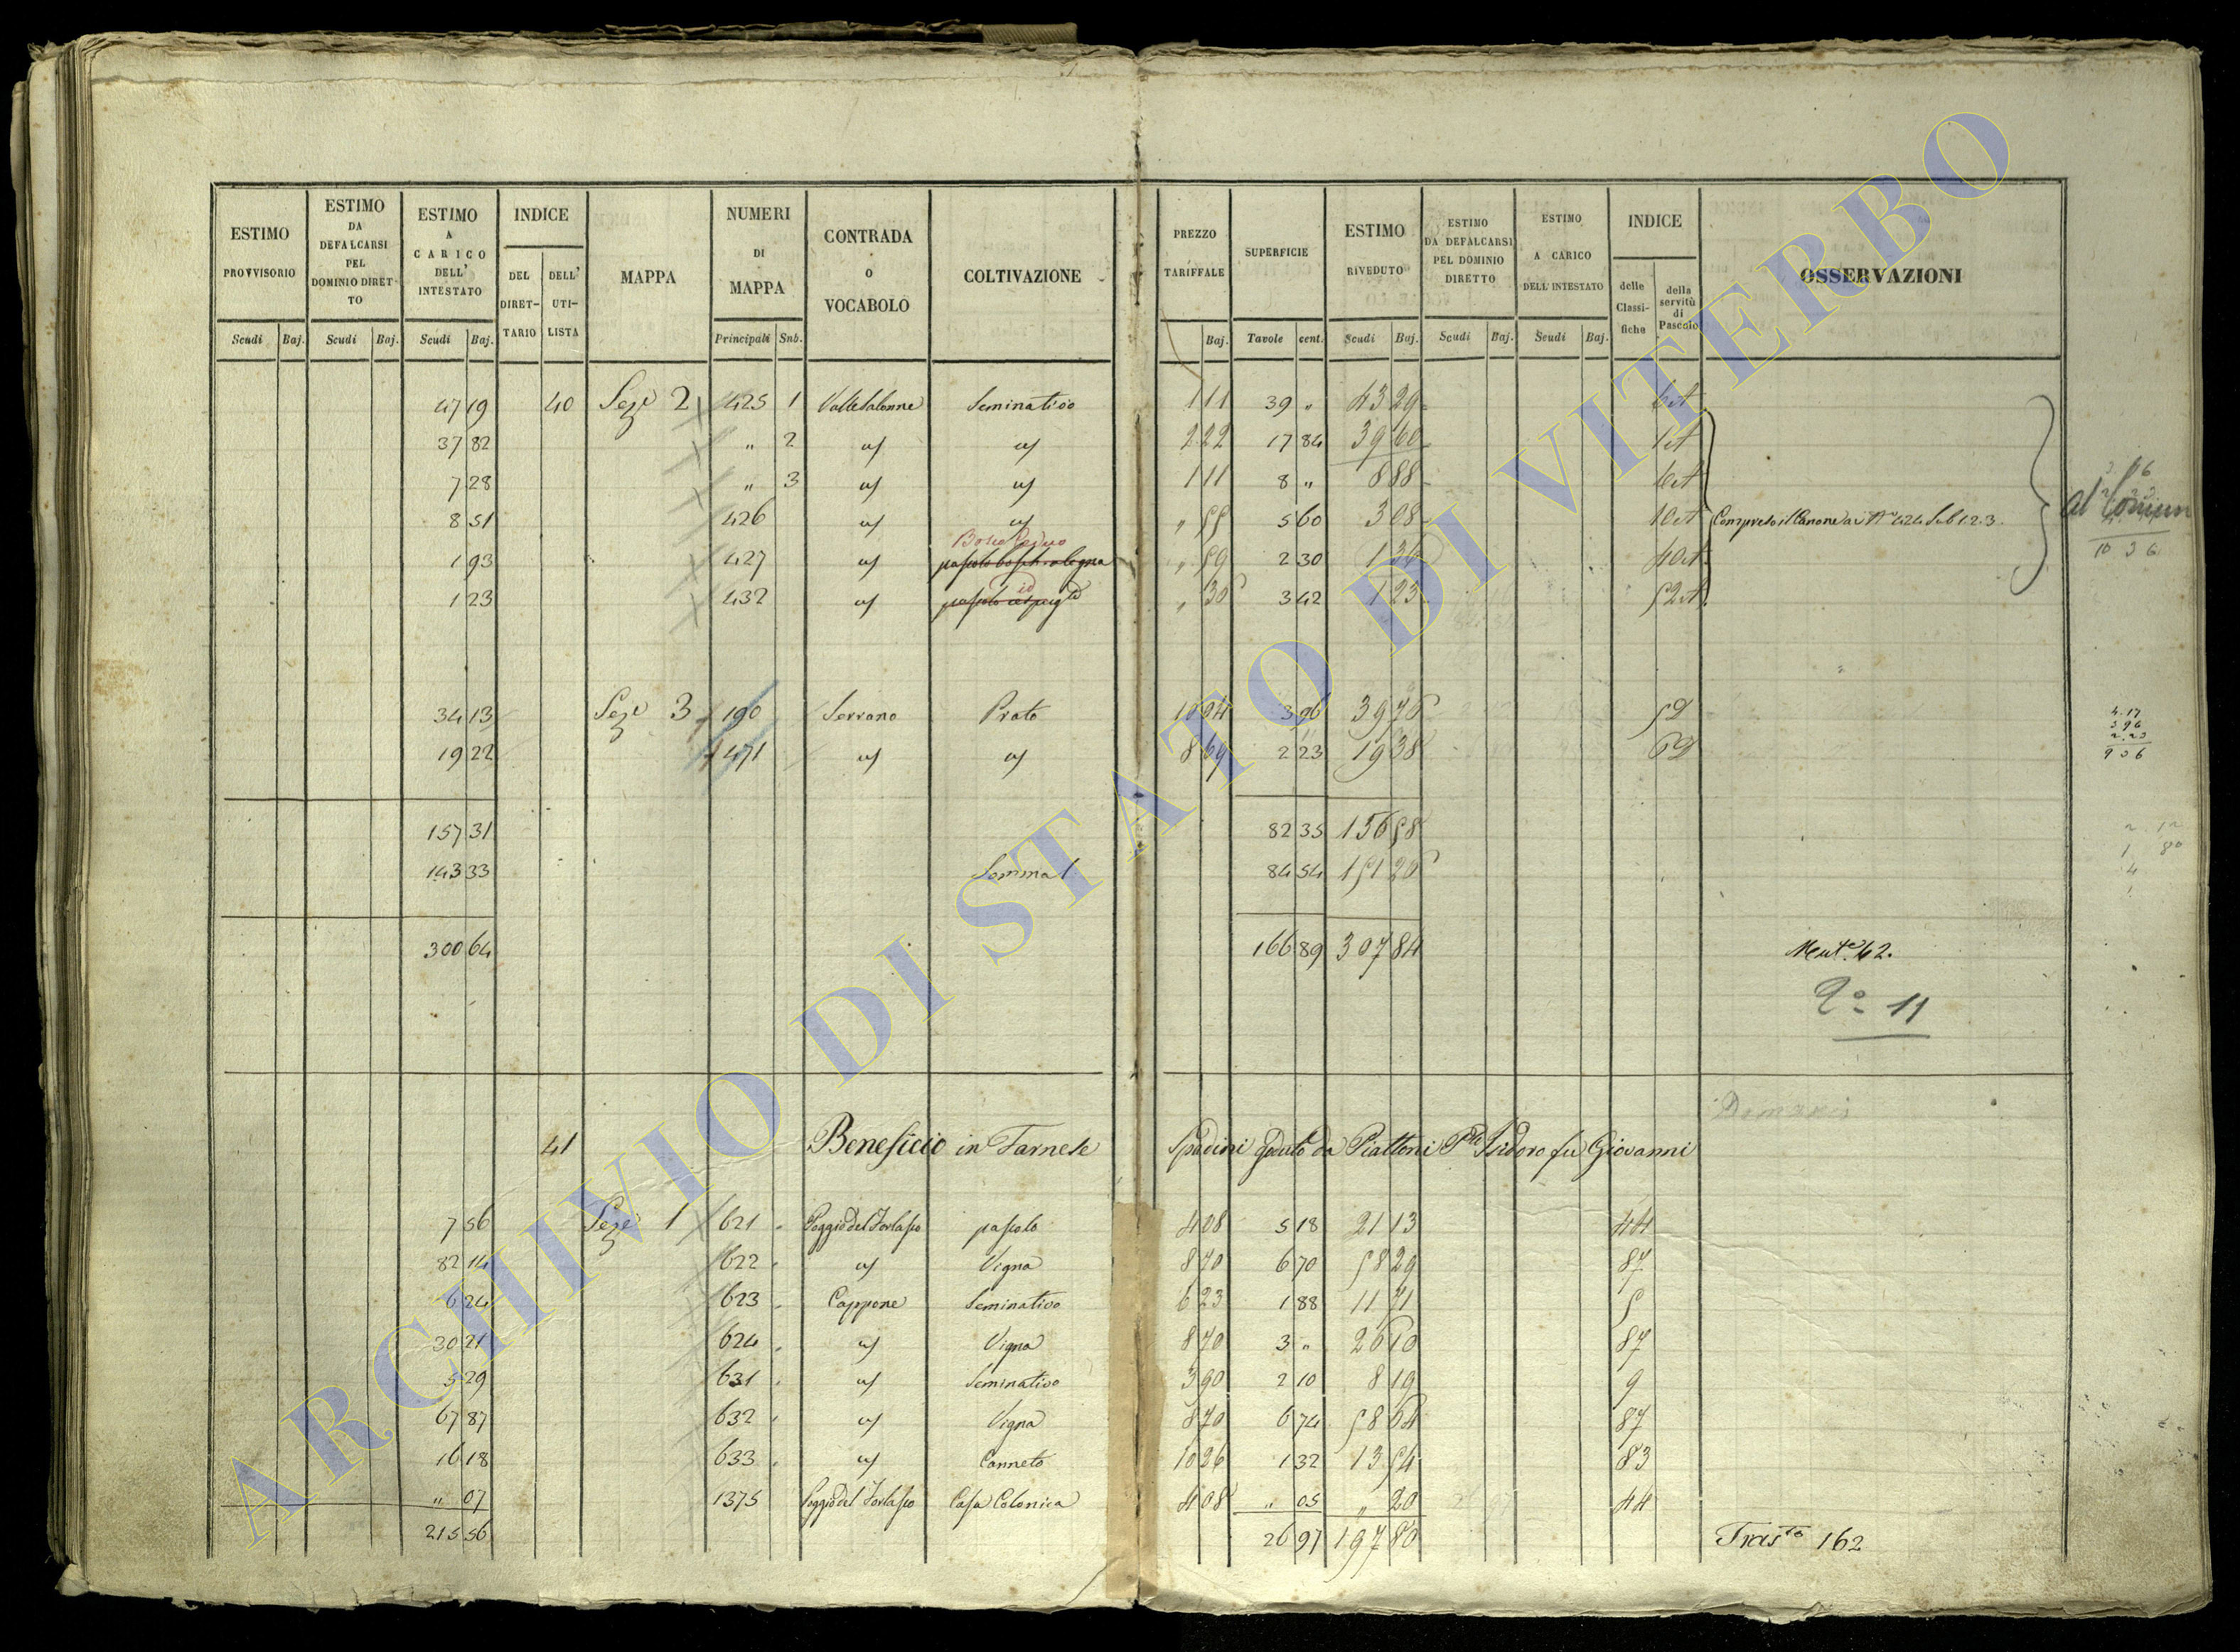 ESTIMO PROVVISORIO | ESTIMO DA DEFALCARSI PEL DOMINIO DIRETTO | ESTIMO A CARICO DELL' INTESTATO | INDICE | MAPPA | NUMERI DI MAPPA | CONTRADA O VOCABOLO | COLTIVAZIONE | PREZZO TARIFFALE | SUPERFICIE | ESTIMO RIVEDUTO | ESTIMO DA DEFALCARSI PEL DOMINIO DIRETTO | ESTIMO A CARICO DELL' INTESTATO | INDICE | OSSERVAZIONI
DEL DIRET-TARIO | DELL' UTI-LISTA | delle Classi-fiche | della servitù di Pascolo
Scudi | Baj. | Scudi | Baj. | Scudi | Baj. | Principali | Sub. | Baj. | Tavole | cent. | Scudi | Baj. | Scudi | Baj. | Scudi | Baj.
47 19 | 40 | Seze 2 | 425 | 1 | Valle Salonne | Seminativo | 1 11 | 39 " | 43 29
37 82 | " | 2 | id | id | 2 22 | 17 84 | 39 60
7 28 | " | 3 | id | id | 1 11 | 8 " | 8 88
8 51 | 426 | id | id | " 55 | 5 60 | 3 08 | Compreso il Canone ai Nri 424 Sub 1.2.3. | al Comun
Bosco Ceduo
1 93 | 427 | id | " 59 | 2 30 | 1 36 | 10 36
id
1 23 | 432 | id | " 36 | 3 42 | 1 23
34 13 | Seze 3 | 190 | Serrano | Prato | 10 04 | 3 96 | 39 76 | 59
19 22 | 471 | id | id | 8 69 | 2 23 | 19 38 | 69
4.17
3 96
2.23
157 31 | 82 35 | 156 58
143 33 | Somma | 84 54 | 151 26
300 64 | 166 89 | 307 84 | Ment.e 42.
2° 11
41 | Beneficio in Farnese Spadini goduto da Piattoni Pte Isidoro fu Giovanni
7 56 | Seze 1 | 621 | Poggio del Torlasco | pascolo | 4 08 | 5 18 | 21 13 | 44
82 14 | 622 | id | Vigna | 8 70 | 6 70 | 58 29 | 87
6 24 | 623 | Cappone | Seminativo | 6 23 | 1 88 | 11 71 | 5
30 21 | 624 | id | Vigna | 8 70 | 3 " | 26 10 | 87
5 29 | 631 | id | Seminativo | 3 90 | 2 10 | 8 19 | 9
67 87 | 632 | id | Vigna | 8 70 | 6 74 | 58 64 | 87
16 18 | 633 | id | Canneto | 10 26 | 1 32 | 13 54 | 83
" 07 | 1375 | Poggio del Torlasco | Casa Colonica | 4 08 | " 05 | " 20 | 44
215 56 | 26 97 | 197 80 | Trasto 162
ARCHIVIO DI STATO DI VITERBO